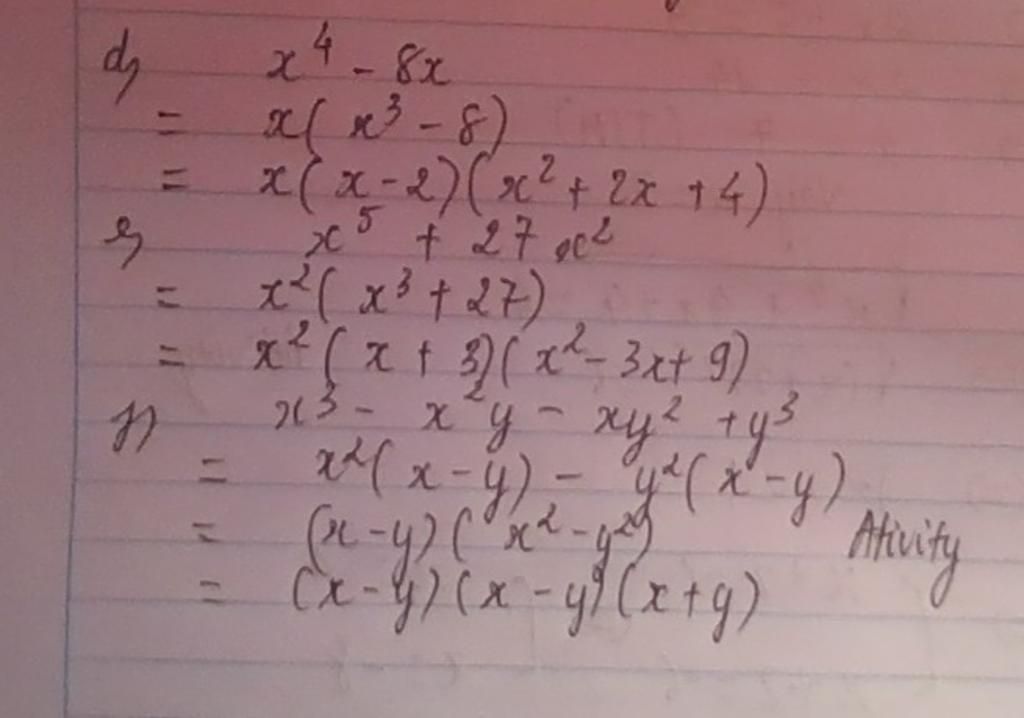 d) x⁴ - 8x
= x( x³ - 8)
= x( x - 2)(x² + 2x + 4)
e) x⁵ + 27x²
= x²( x³ + 27)
= x²( x + 3)(x² - 3x + 9)
f) x³ - x²y - xy² + y³
= x²( x - y) - y²( x - y)
= (x - y)( x² - y²) Ativity
= (x - y)(x - y)(x + y)